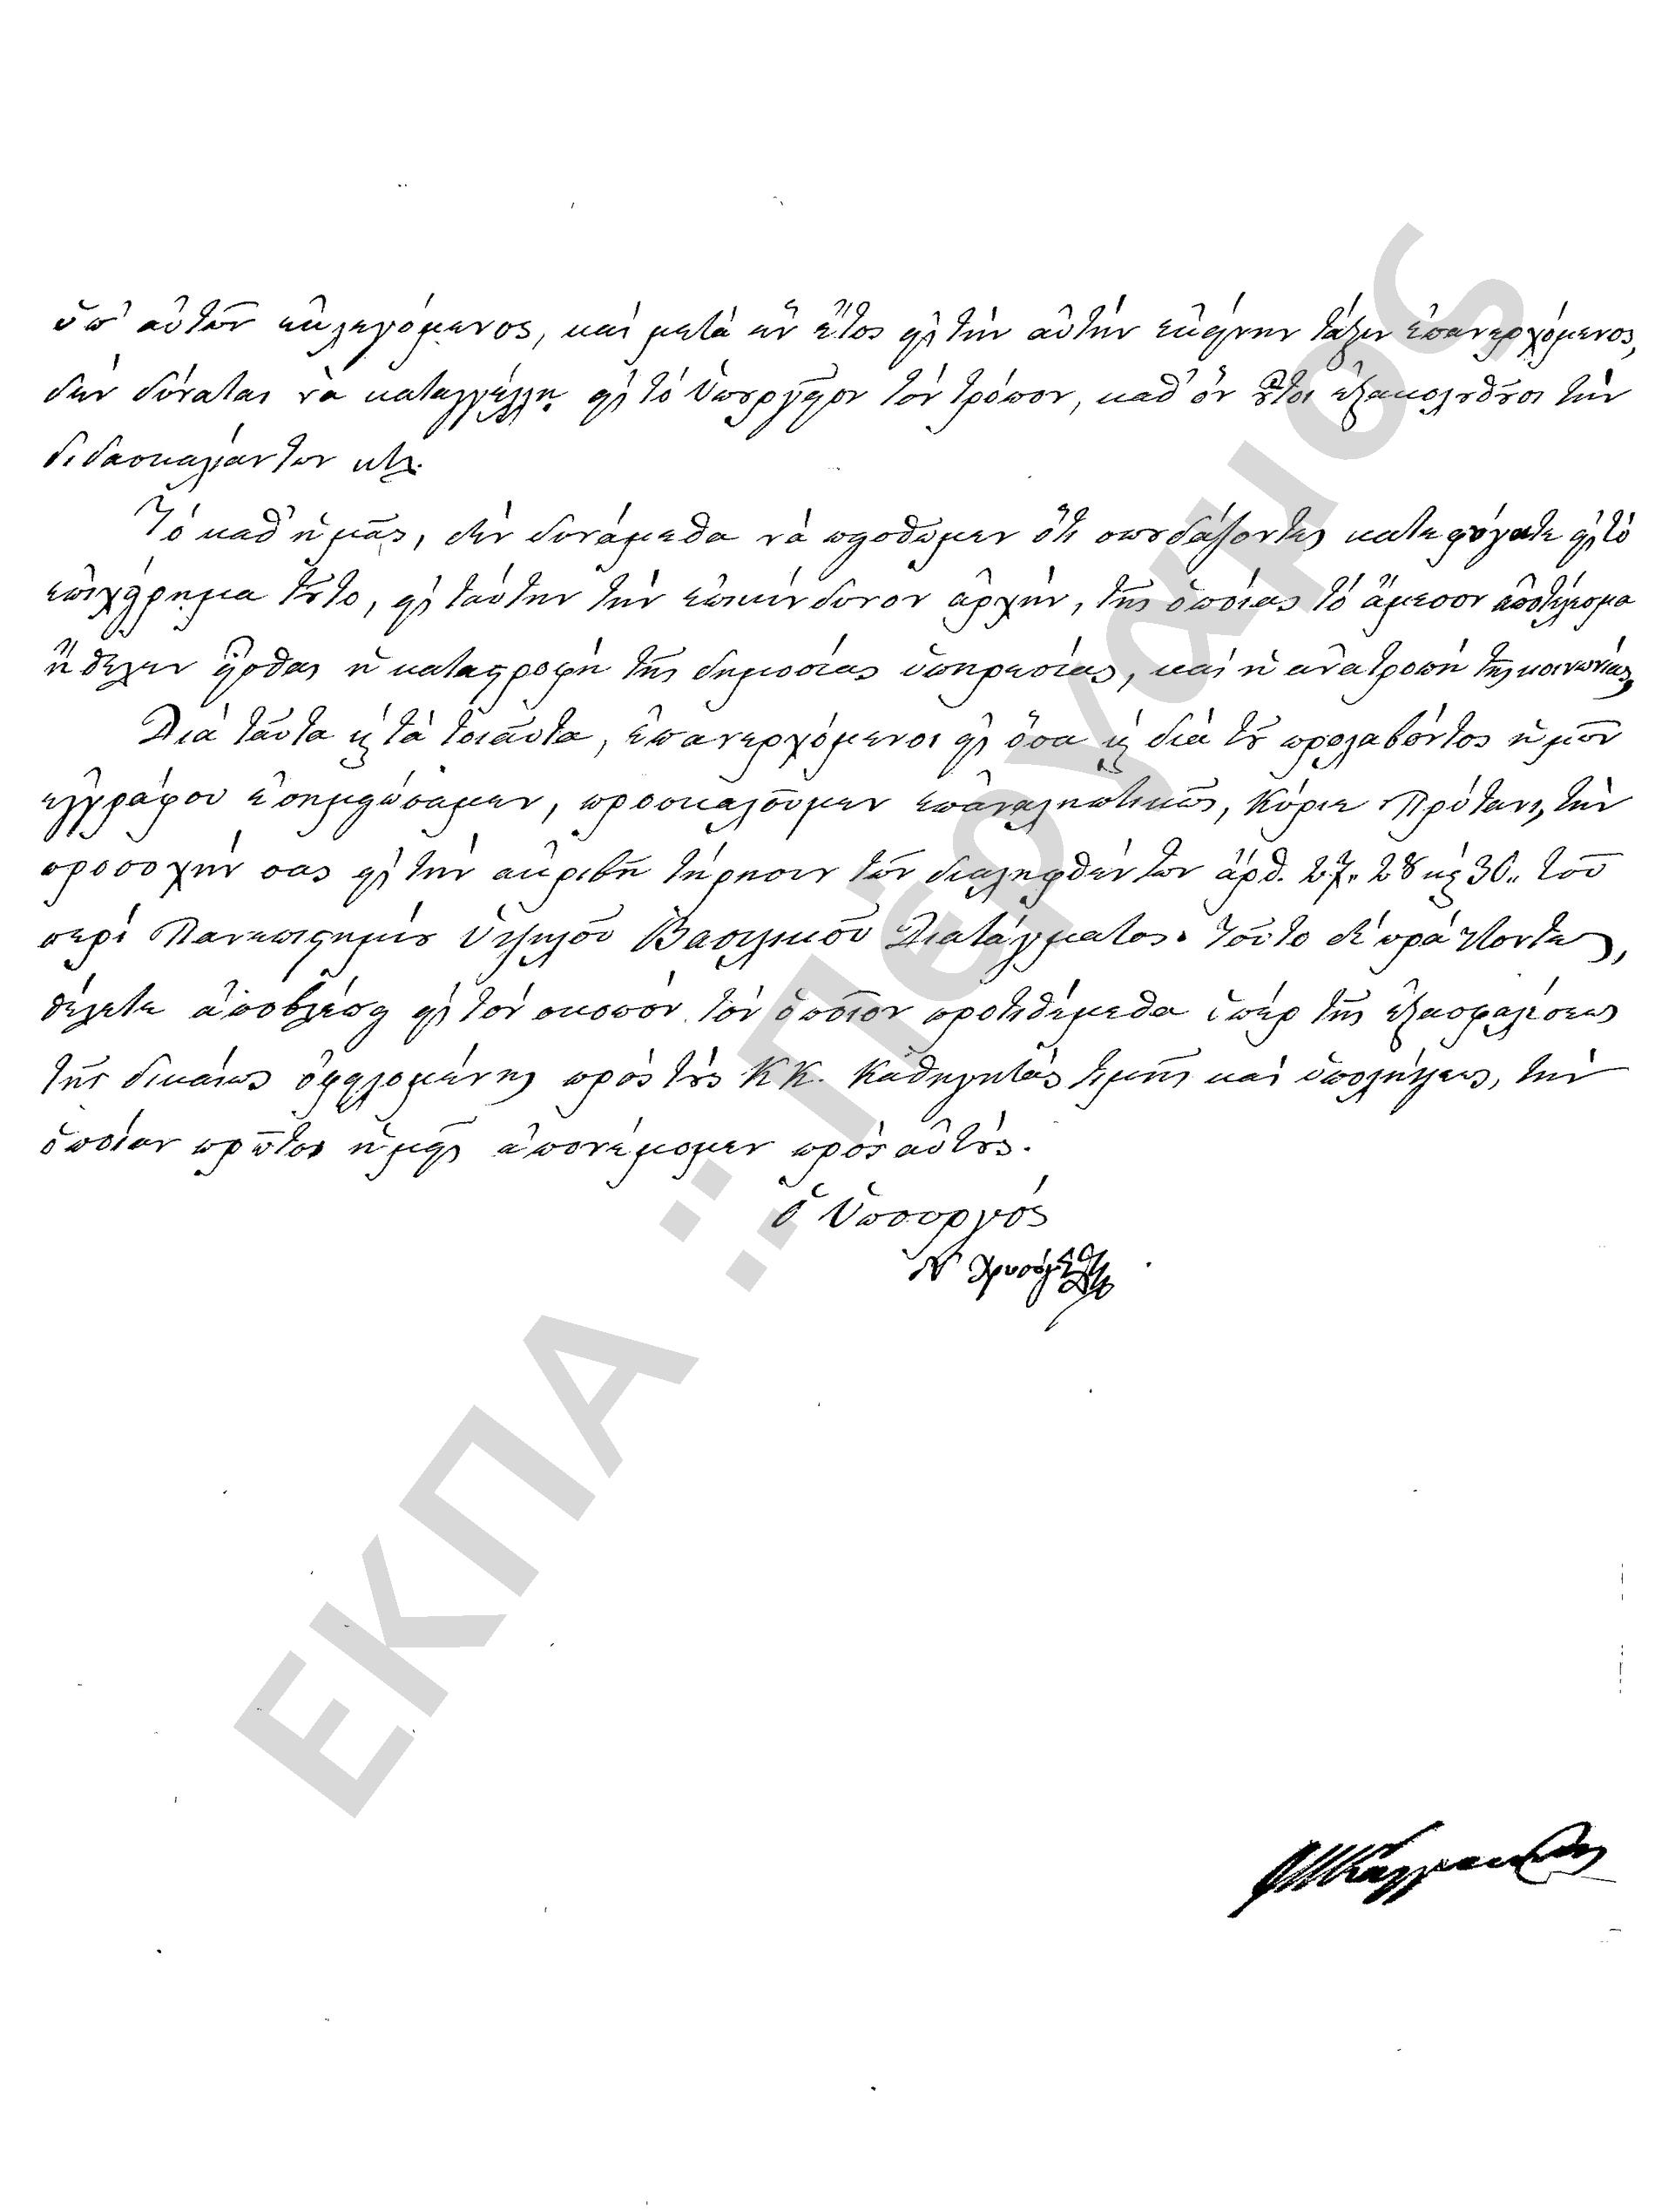 ὑπ' αὐτῶν ἐκλεγόμενος, καὶ μετὰ ἓν ἔτος εἰς τὴν αὐτὴν ἐκείνην τάξιν ἐπανερχόμενος,
δὲν δύναται νὰ καταγγέλλῃ εἰς τὸ Ὑπουργεῖον τὸν τρόπον, καθ' ὃν οὗτοι ἐξακολουθοῦσι τὴν
διδασκαλίαν των κτλ.
Τὸ καθ' ἡμᾶς, δὲν δυνάμεθα νὰ πεισθῶμεν ὅτι σπουδάζοντες κατεφύγατε εἰς τὸ
ἐπιχείρημα τοῦτο, εἰς ταύτην τὴν ἐπικίνδυνον ἀρχήν, τῆς ὁποίας τὸ ἄμεσον ἀποτέλεσμα
ἤθελεν εἶσθαι ἡ καταστροφὴ τῆς δημοσίας ὑπηρεσίας, καὶ ἡ ἀνατροπὴ τῆς κοινωνίας,
Διὰ ταῦτα καὶ τὰ τοιαῦτα, ἐπανερχόμενοι εἰς ὅσα καὶ διὰ τοῦ προλαβόντος ἡμῶν
ἐγγράφου ἐσημειώσαμεν, προσκαλοῦμεν ἐπαναληπτικῶς, Κύριε Πρύτανι, τὴν
προσοχήν σας εἰς τὴν ἀκριβῆ τήρησιν τῶν διαληφθέντων ἄρθ. 27, 28 καὶ 30 τοῦ
περὶ Πανεπιστημίου Ὑψηλοῦ Βασιλικοῦ Διατάγματος. Τοῦτο δὲ πράττοντες,
θέλετε ἀποβλέψῃ εἰς τὸν σκοπὸν τὸν ὁποῖον προτιθέμεθα ὑπὲρ τῆς ἐξασφαλίσεως
τῆς δικαίως ὀφειλομένης πρὸς τοὺς ΚΚ. Καθηγητὰς τιμῆς καὶ ὑπολήψεως, τὴν
ὁποίαν πρῶτοι ἡμεῖς ἀπονέμομεν πρὸς αὐτούς.
Ὁ Ὑπουργὸς
ΕΚΠΑ :: Πέργαμος